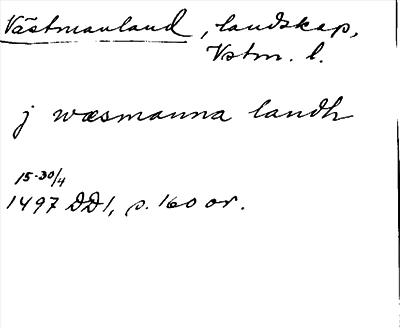 Västmanland, landskap,
Vstm. l.
j wæsmanna landh
15-30/4
1497 DD1, p. 160 or.